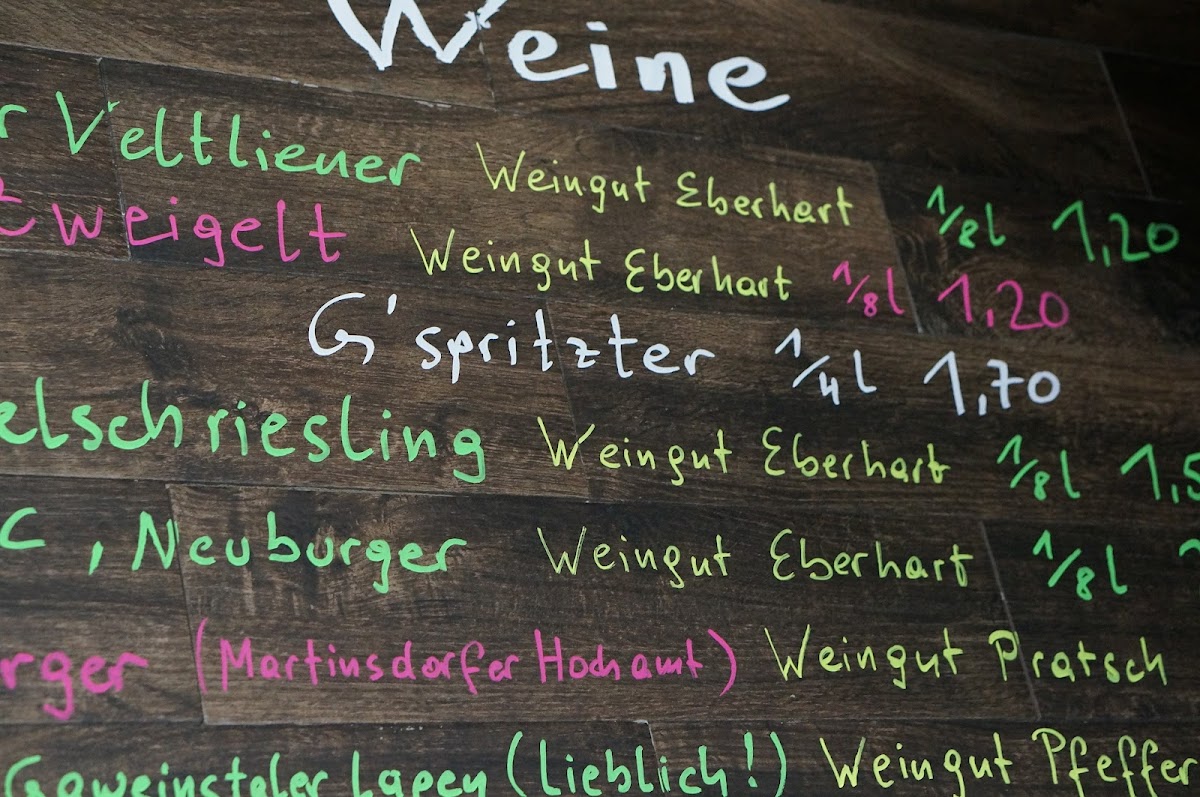 Weine
r Veltliener Weingut Eberhart 1/8l 1,20
zweigelt Weingut Eberhart 1/8l 1,20
G'spritzter 1/4l 1,70
elschriesling Weingut Eberhart 1/8l 1,5
C, Neuburger Weingut Eberhart 1/8l
rger (Martinsdorfer Hochamt) Weingut Pratsch
Gaweinstaler Lapen (Lieblich!) Weingut Pfeffer